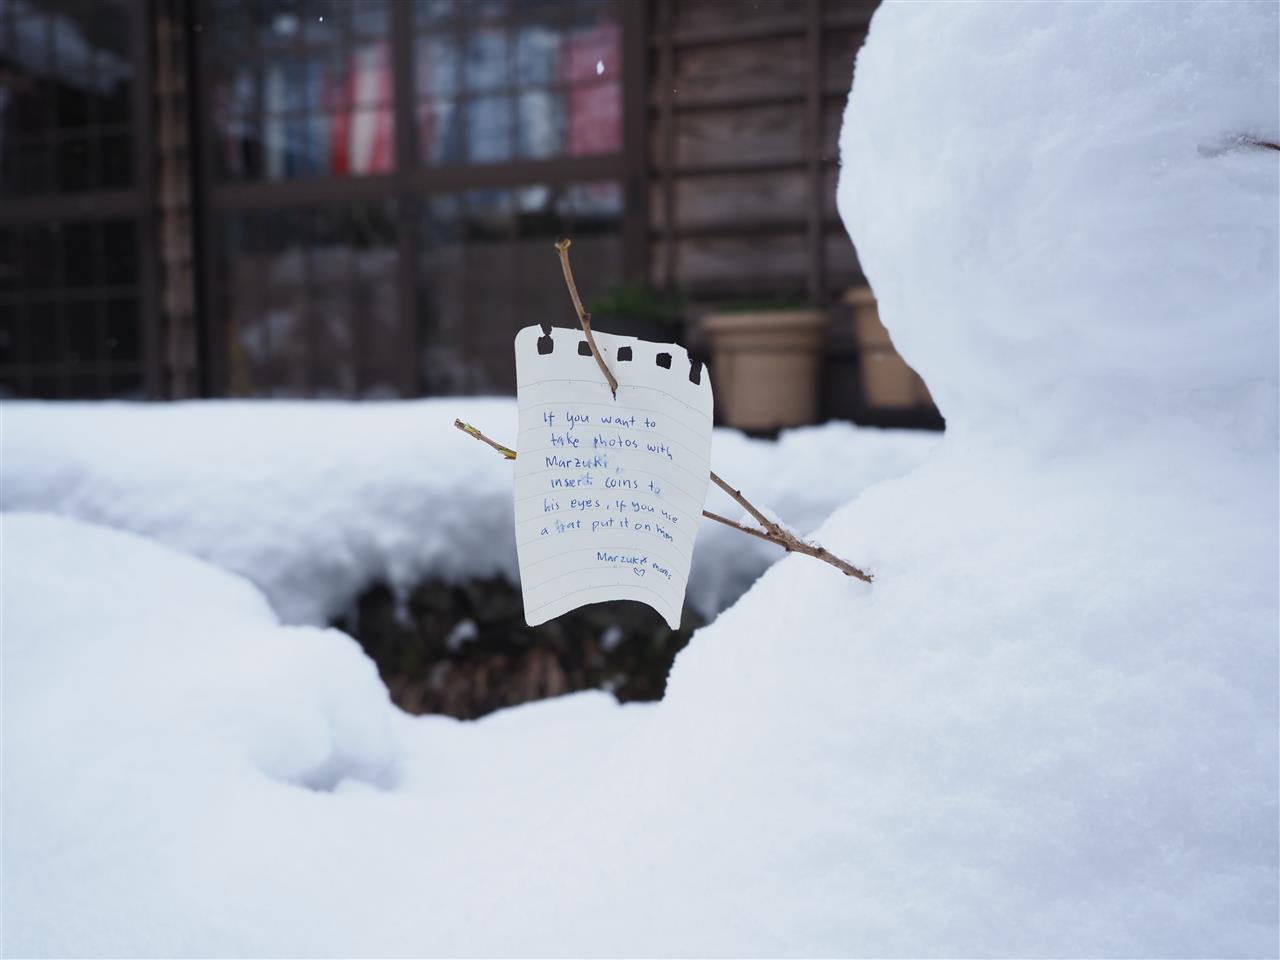 If you want to
take photos with
Marzuki,
insert coins to
his eyes, if you use
a hat put it on him
Marzuki's moms